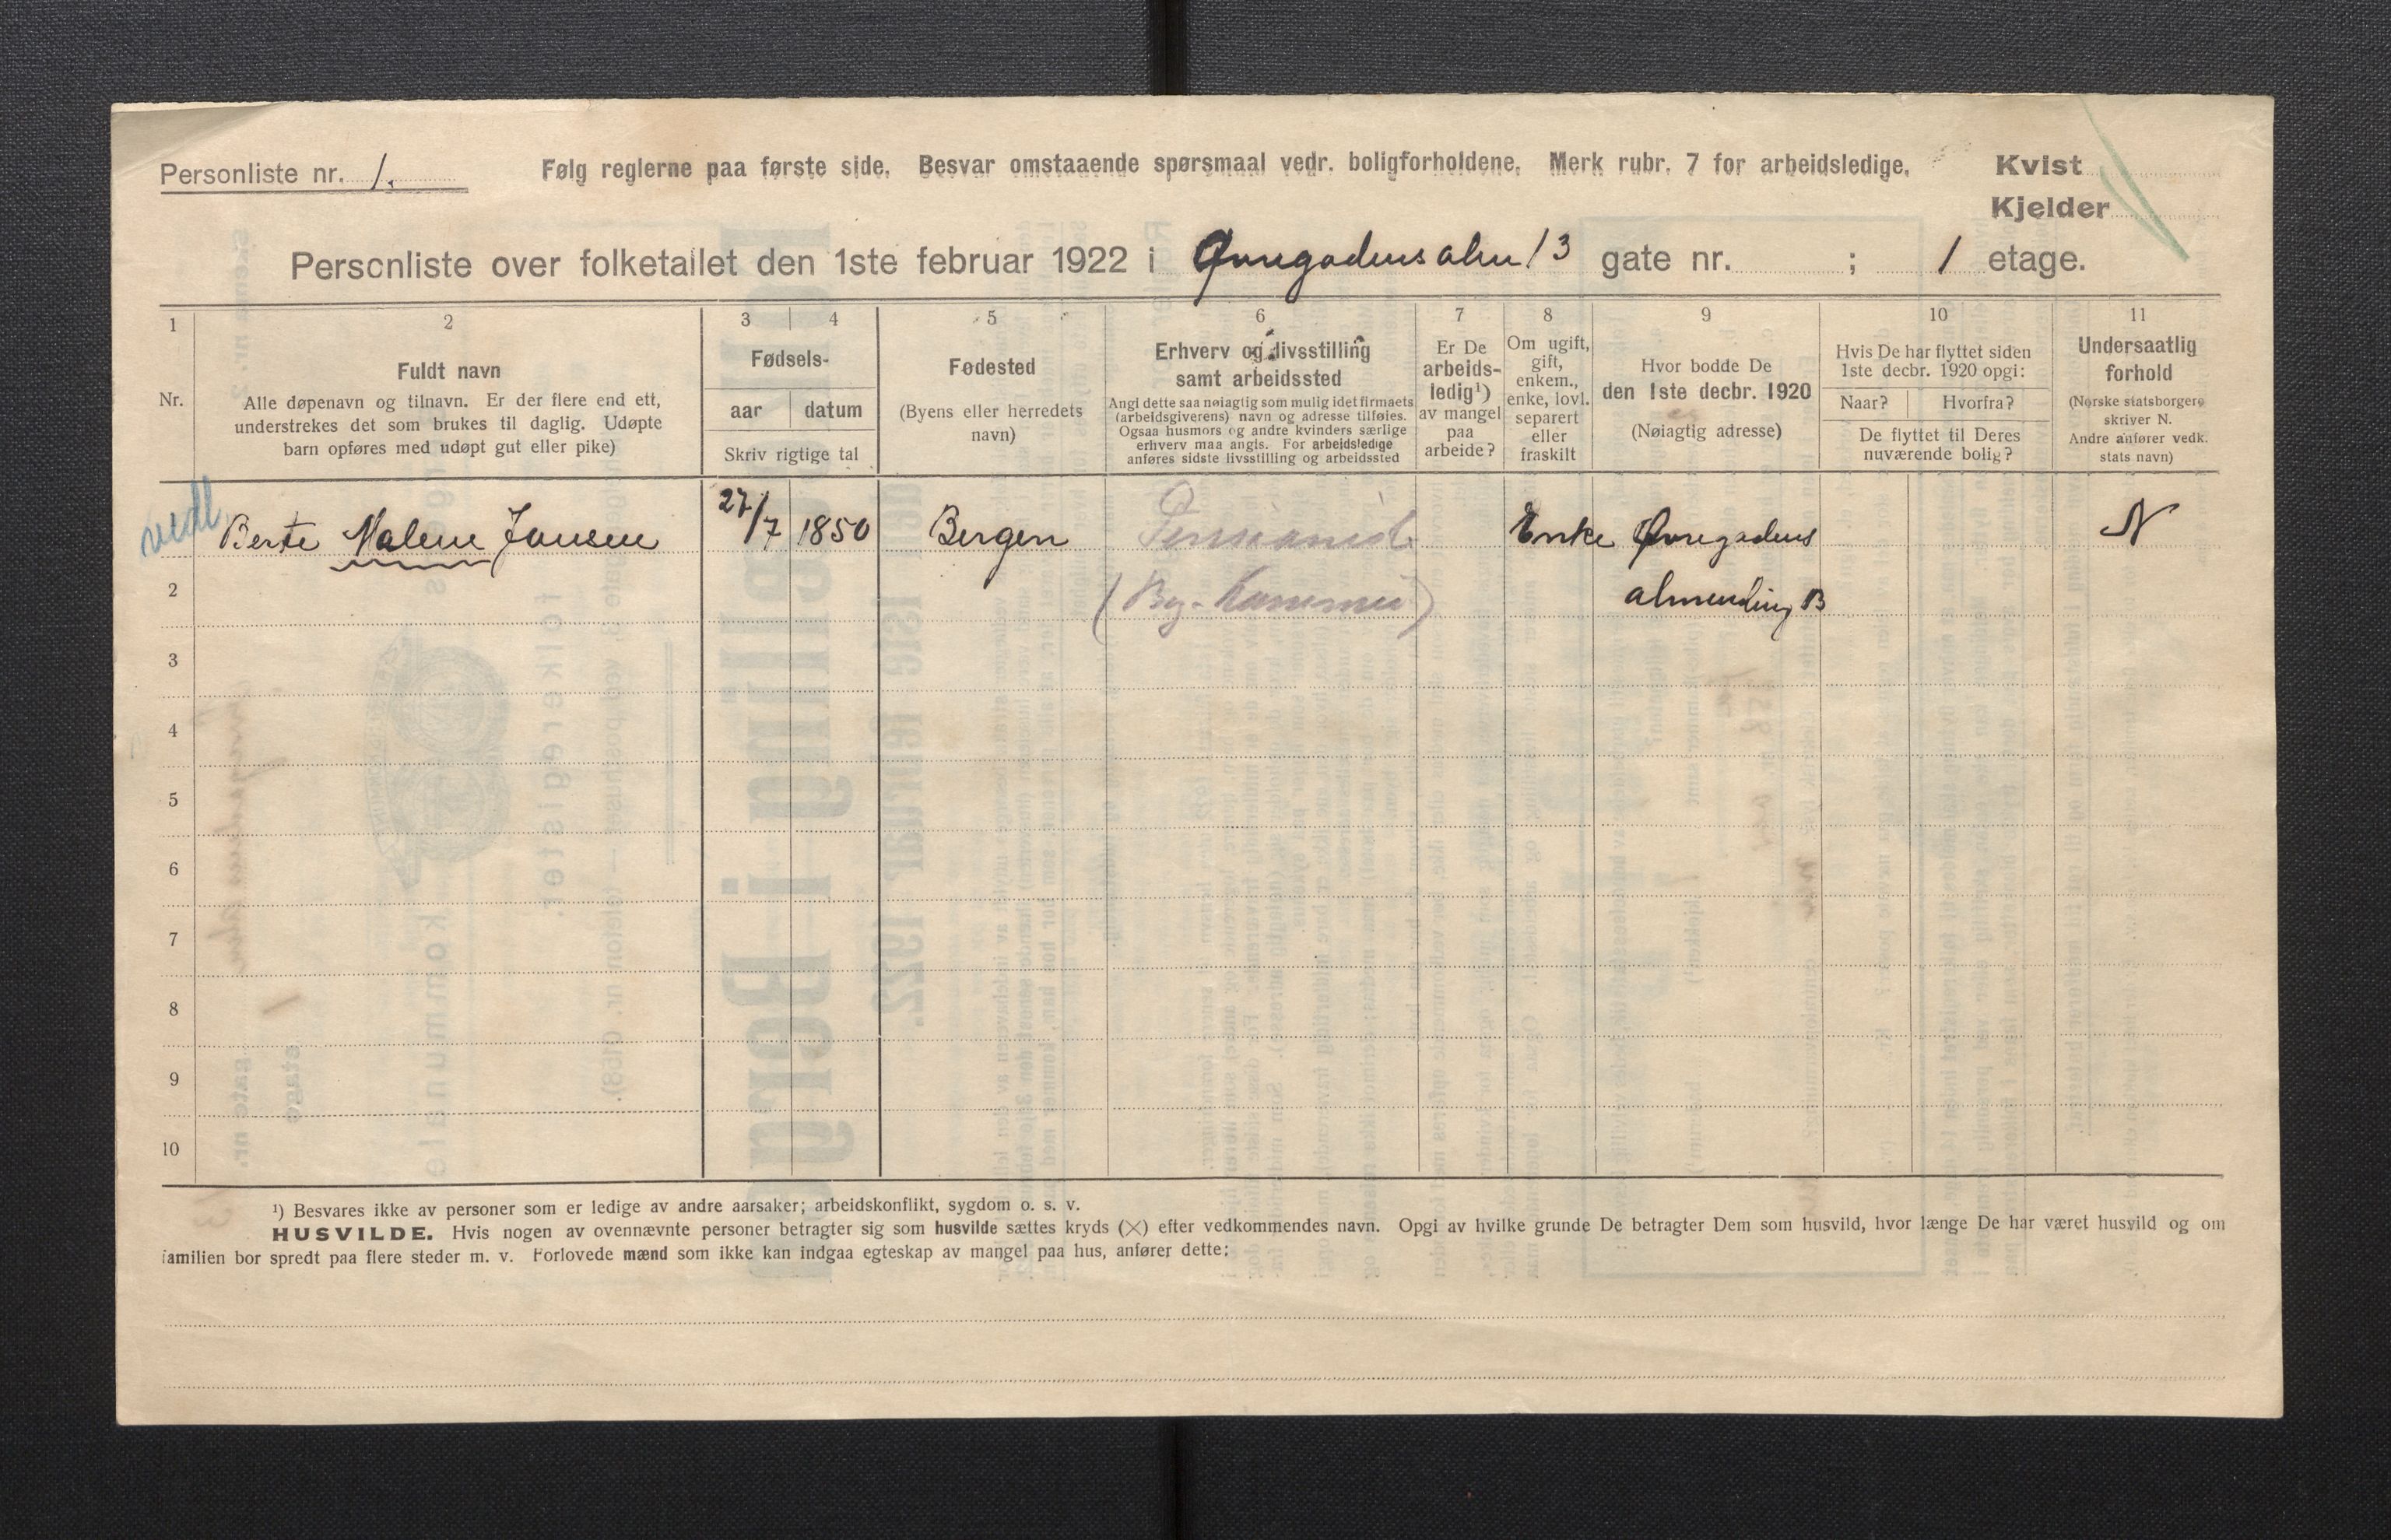 Personliste nr. 1.
Følg reglerne paa første side. Besvar omstaaende spørsmaal vedr. boligforholdene. Merk rubr. 7 for arbeidsledige.
Kvist
Kjelder
Personliste over folketallet den 1ste februar 1922 i Øvregadensalm 13 gate nr. ; 1 etage.
1 2 3 4 5 6 7 8 9 10 11
Nr.
Fuldt navn
Alle døpenavn og tilnavn. Er der flere end ett,
understrekes det som brukes til daglig. Udøpte
barn opføres med udøpt gut eller pike)
Fødsels-
aar datum
Skriv rigtige tal
Fødested
(Byens eller herredets
navn)
Erhverv og livsstilling
samt arbeidssted
Angi dette saa nøiagtig som mulig idet firmaets
(arbeidsgiverens) navn og adresse tilføies.
Ogsaa husmors og andre kvinders særlige
erhverv maa angis. For arbeidsledige
anføres sidste livsstilling og arbeidssted
Er De
arbeids-
ledig¹)
av mangel
paa
arbeide?
Om ugift,
gift,
enkem.,
enke, lovl.
separert
eller
fraskilt
Hvor bodde De
den 1ste decbr. 1920
(Nøiagtig adresse)
Hvis De har flyttet siden
1ste decbr. 1920 opgi:
Naar? Hvorfra?
De flyttet til Deres
nuværende bolig?
Undersaatlig
forhold
(Norske statsborgere
skriver N.
Andre anfører vedk.
stats navn)
vedl Berte Malene Jansen 27/7 1850 Bergen Pensionist Enke Øvregadens N
2 almending 13
3
4
5
6
7
8
9
10
¹) Besvares ikke av personer som er ledige av andre aarsaker; arbeidskonflikt, sygdom o. s. v.
HUSVILDE. Hvis nogen av ovennævnte personer betragter sig som husvilde sættes kryds (×) efter vedkommendes navn. Opgi av hvilke grunde De betragter Dem som husvild, hvor længe De har været husvild og om
familien bor spredt paa flere steder m. v. Forlovede mænd som ikke kan indgaa egteskap av mangel paa hus, anfører dette: